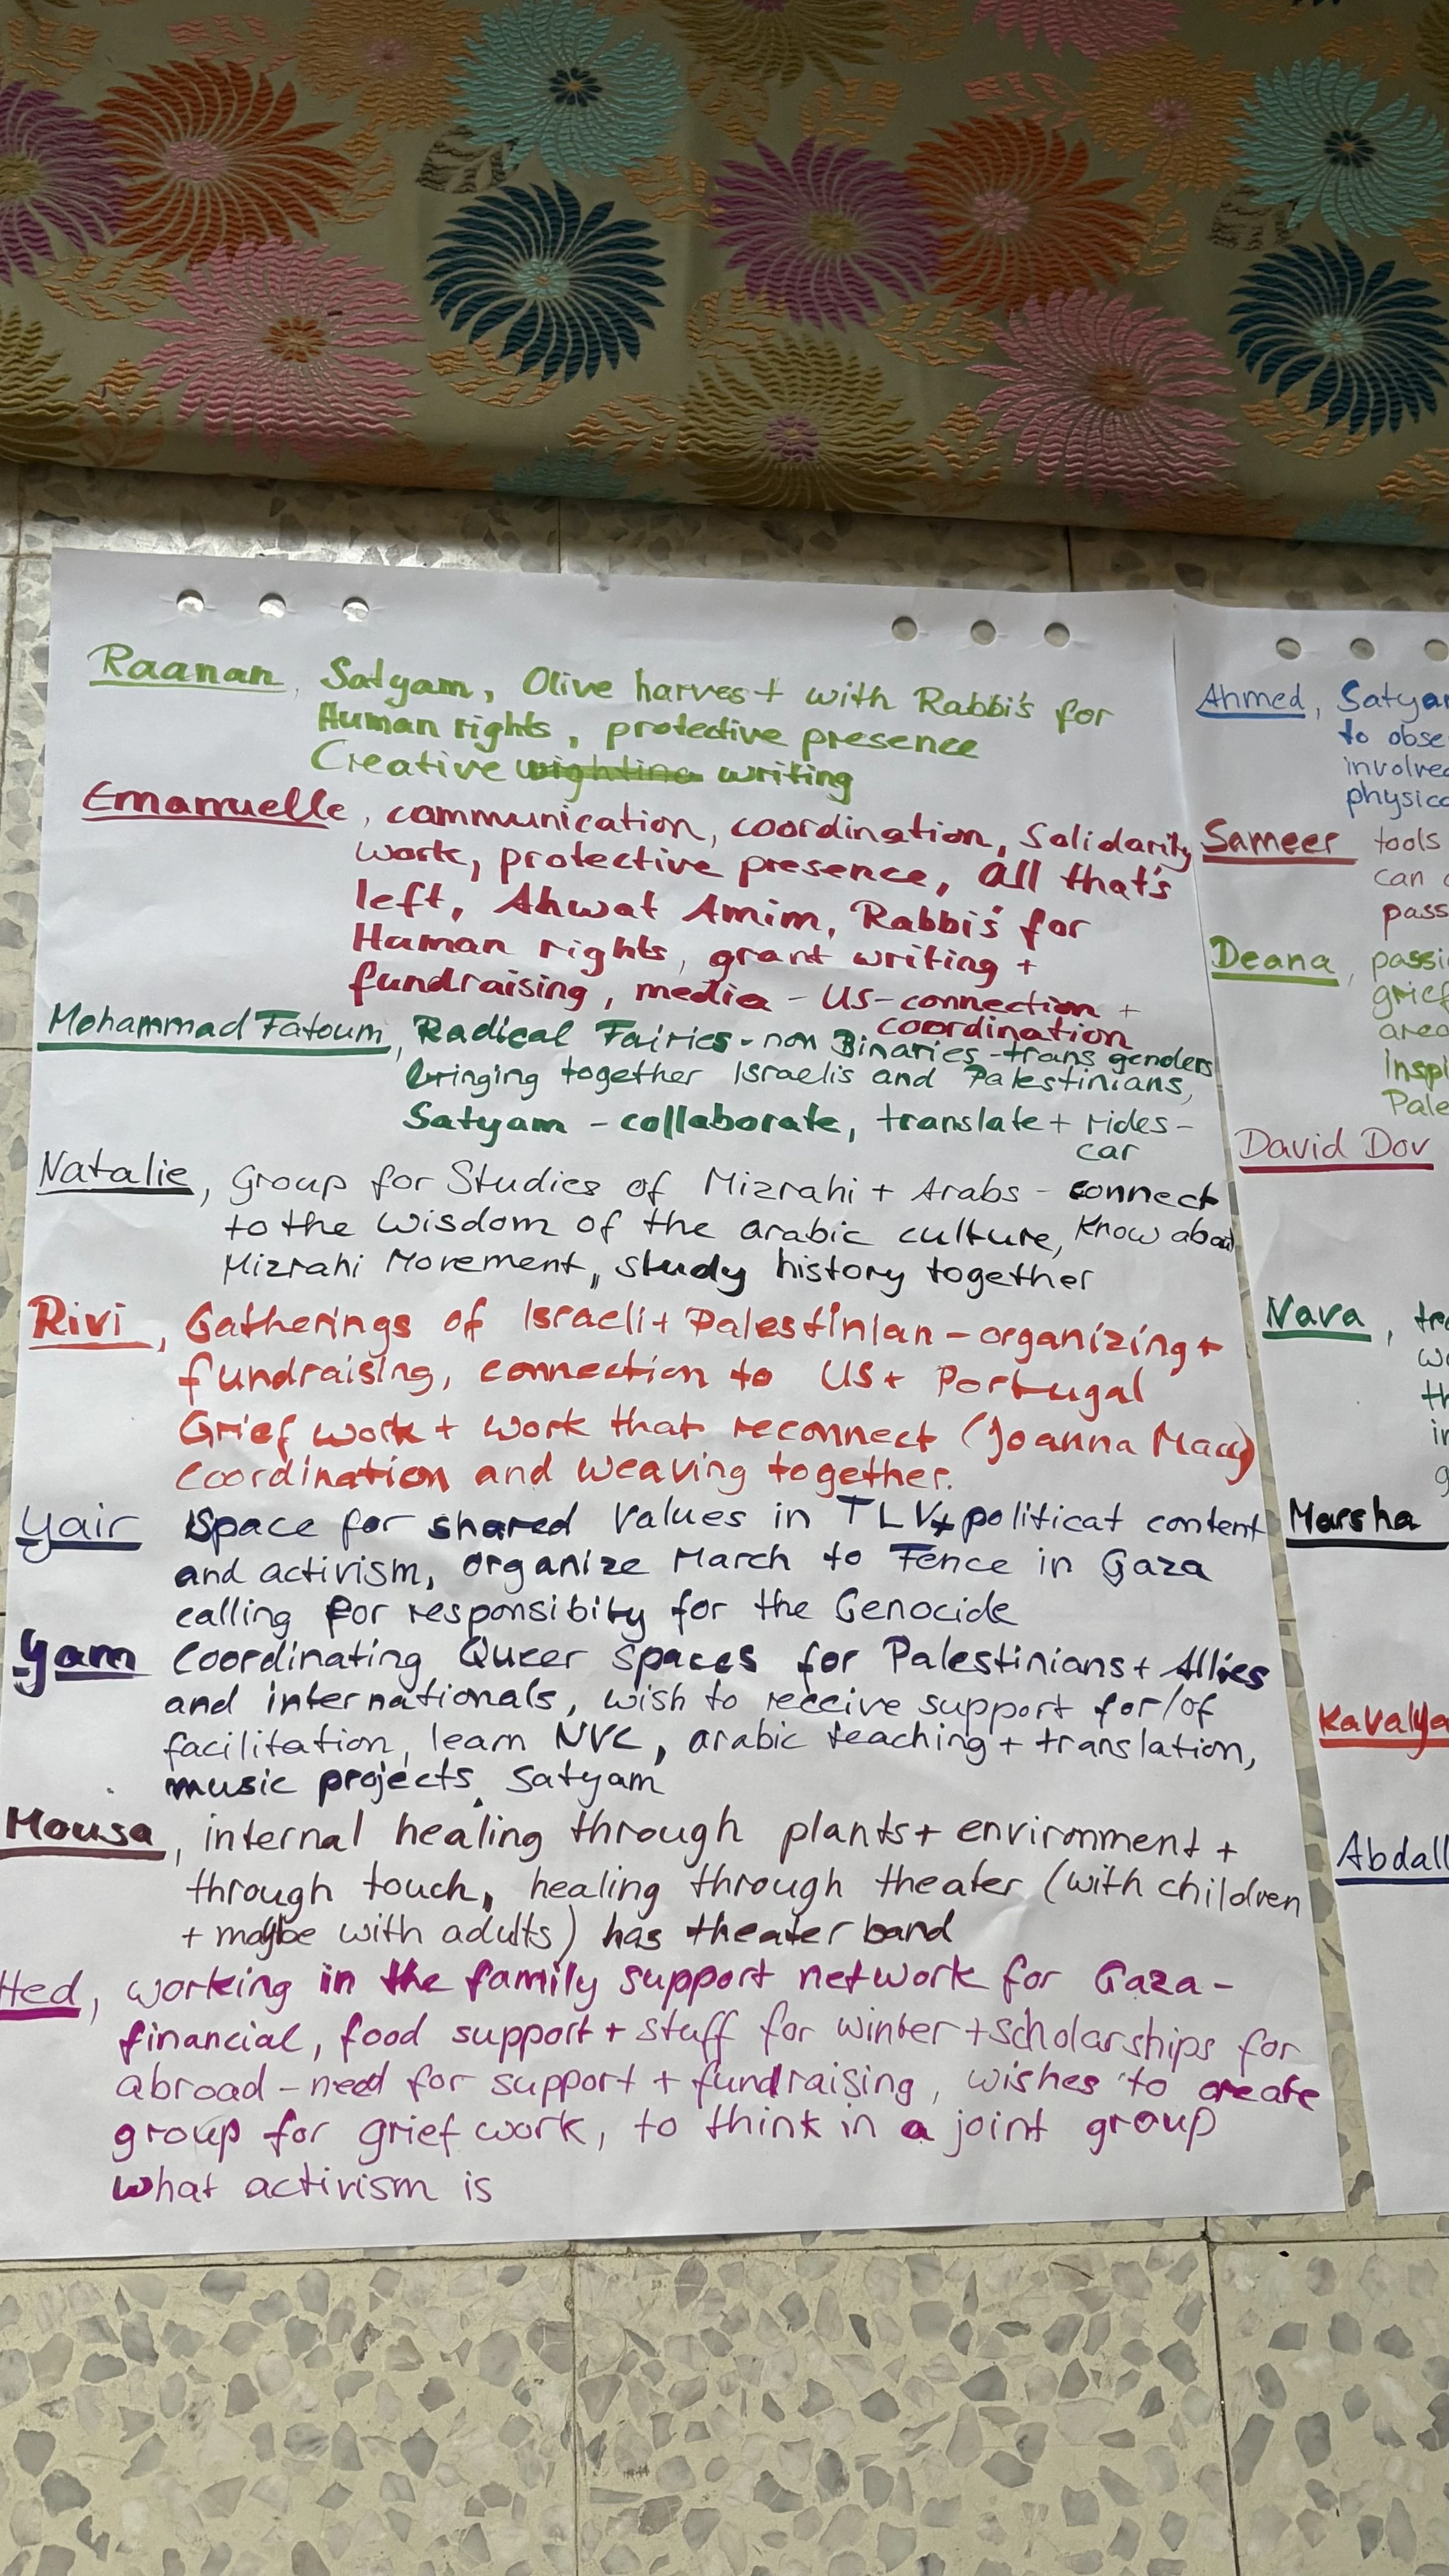 Raanan, Satyam, Olive harvest with Rabbi's for
Human rights, protective presence
Creative writing
Emanuelle, communication, coordination, Solidarity
work, protective presence, All that's
left, Ahwat Amim, Rabbi's for
Human rights, grant writing +
fundraising, media - US-connection +
coordination
Mohammad Fatoum, Radical Fairies - non Binaries - trans genders
bringing together Israelis and Palestinians,
Satyam - collaborate, translate + rides -
car
Natalie, Group for Studies of Mizrahi + Arabs - connect
to the wisdom of the arabic culture, Know about
Mizrahi Movement, study history together
Rivi, Gatherings of Israeli + Palestinian - organizing +
fundraising, connection to US + Portugal
Grief work + work that reconnect (Joanna Macy)
Coordination and weaving together.
Yair Space for shared values in TLV + politicat content
and activism, organize March to Fence in Gaza
calling for responsibility for the Genocide
Yam Coordinating Queer Spaces for Palestinians + Allies
and internationals, wish to receive support for/of
facilitation, learn NVC, arabic teaching + translation,
music projects, Satyam
Mousa, internal healing through plants + environment +
through touch, healing through theater (with children
+ maybe with adults) has theater band
Hed, working in the family support network for Gaza -
financial, food support + stuff for winter + scholarships for
abroad - need for support + fundraising, wishes to create
group for grief work, to think in a joint group
what activism is
Ahmed, Satya
to obse
involve
physic
Sameer tools
can
pass
Deana, passi
grief
area
Inspi
Pale
David Dov
Nava, tra
w
th
in
g
Marsha
Kavalya
Abdall